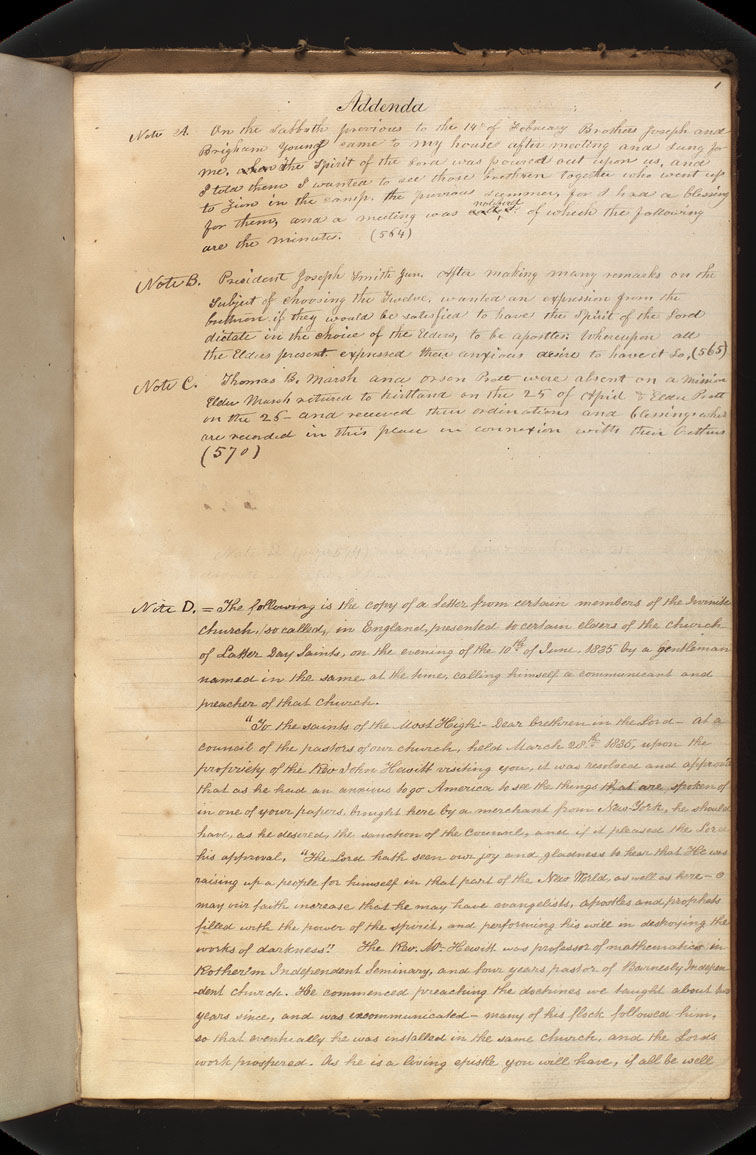 1
Addenda
Note A. On the Sabbath previous to the 14th of February Brothers Joseph and
Brigham Young came to my house after meeting and sung for
me, when the Spirit of the Lord was poured out upon us, and
I told them I wanted to see those brethren together who went up
to Zion in the camp, the previous summer, for I had a blessing
for them, and a meeting was notified of which the following
are the minutes. (564)
Note B. President Joseph Smith Jun. after making many remarks on the
Subject of choosing the Twelve, wanted an expression from the
brethren if they would be satisfied to have the Spirit of the Lord
dictate in the choice of the Elders, to be apostles: Whereupon all
the Elders present expressed their anxious desire to have it so, (565)
Note C. Thomas B. Marsh and Orson Pratt were absent on a mission
Elder Marsh returned to Kirtland on the 25 of April & Elder Pratt
on the 26- and received their ordinations and blessings which
are recorded in this place in connexion with their brethren
(570)
Note D. = The following is the copy of a letter from certain members of the Irvinite
church, so called, in England, presented to certain elders of the church
of Latter Day Saints, on the evening of the 10th of June, 1835 by a gentleman
named in the same, at the time, calling himself a communicant and
preacher of that church.
"To the saints of the Most High:- Dear brethren in the Lord- At a
council of the pastors of our church, held March 28th 1835, upon the
propriety of the Rev John Hewitt visiting you, it was resolved and approved
that as he had an anxious to go America to see the things that are spoken of
in one of your papers, brought here by a merchant from New York, he should
have, as he desired, the sanction of the council, and if it pleased the Lord
his approval, "The Lord hath seen our joy and gladness to hear that He was
raising up a people for himself in that part of the New World, as well as here- O
may our faith increase that he may have evangelists, apostles and prophets
filled with the power of the spirit, and performing his will in destroying the
works of darkness!! The Rev. Mr. Hewitt was professor of mathematics in
Rotherm Independent Seminary, and four years pastor of Barnesly Indepen-
-dent church. He commenced preaching the doctrines we taught about two
years since, and was excommunicated- many of his flock followed him,
so that eventually he was installed in the same church, and the Lord's
work prospered. As he is a living epistle you will have, if all be well